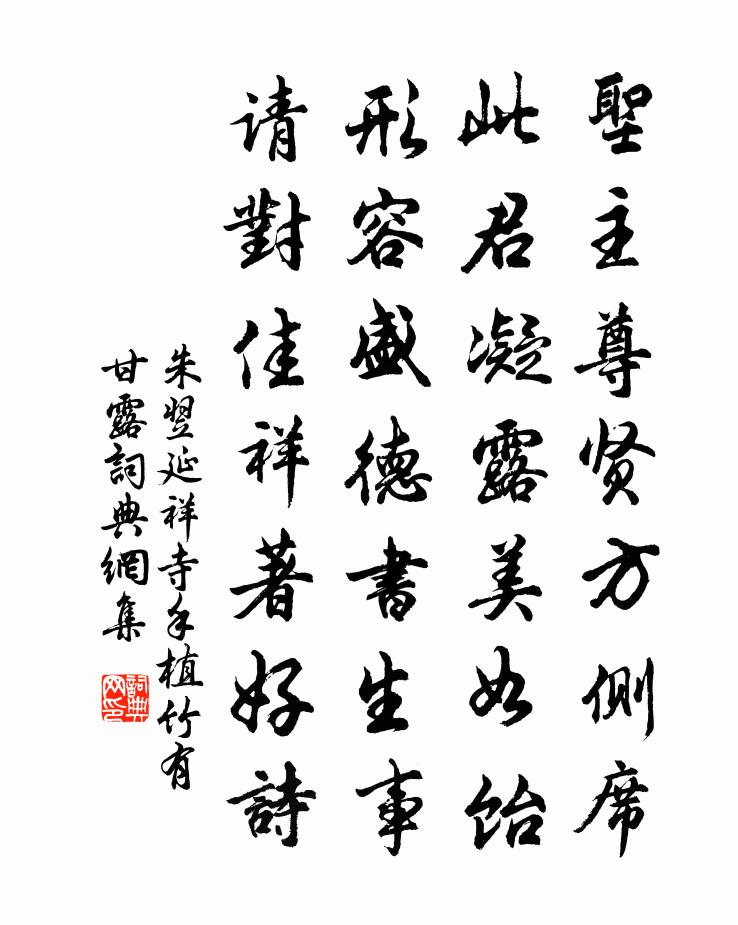 聖主尊贤方側席
此君凝露美如饴
形容盛德書生事
请對佳祥著好詩
朱翌延祥寺手植竹有
甘露詞典網集
詞典网印